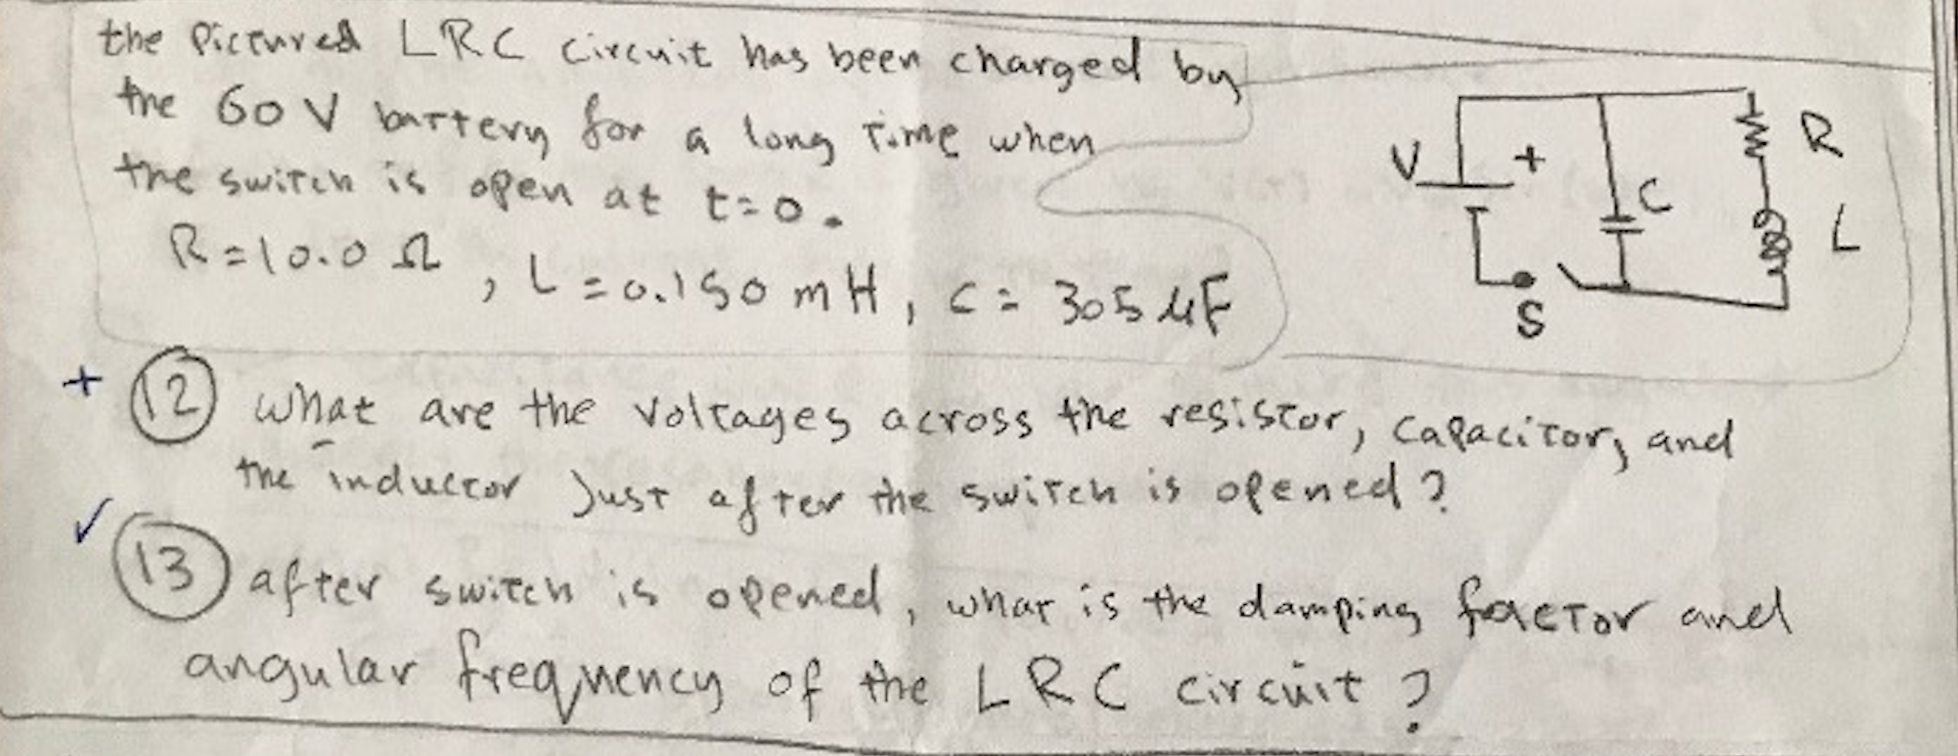 the Pictured LRC circuit has been charged by
the 60 V battery for a long time when
the switch is open at t=0.
R=10.0 Ω, L=0.150 mH, C= 305 μF
V + C R L S
+ 12 what are the voltages across the resistor, capacitor, and
the inductor Just after the switch is opened?
✓ 13 after switch is opened, what is the damping factor and
angular frequency of the LRC circuit?